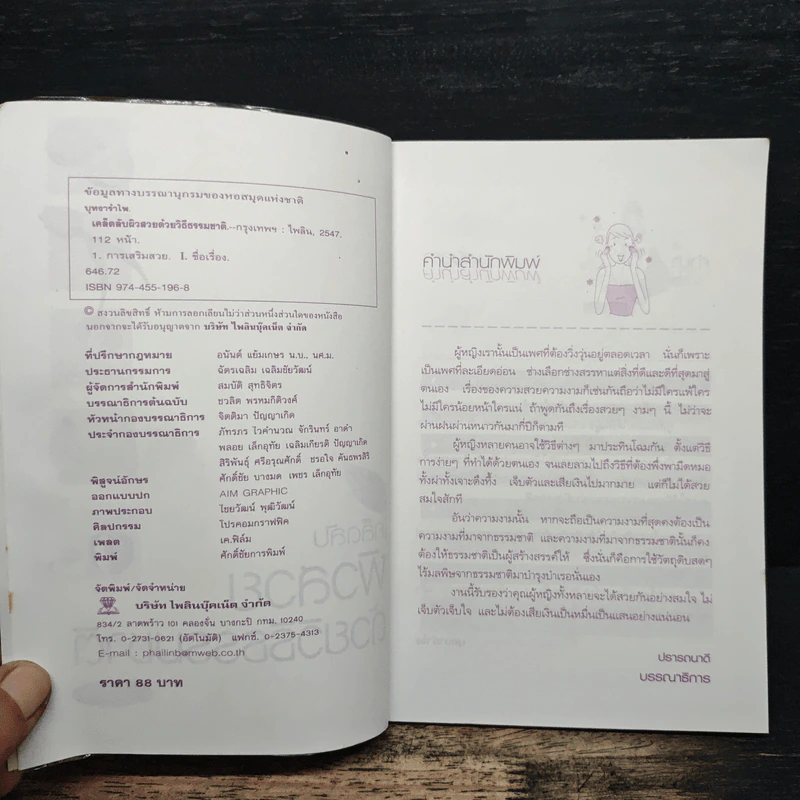 ข้อมูลทางบรรณานุกรมของหอสมุดแห่งชาติ
บุหงารำไพ.
เคล็ดลับผิวสวยด้วยวิธีธรรมชาติ.--กรุงเทพฯ : ไพลิน, 2547.
112 หน้า.
1. การเสริมสวย. I. ชื่อเรื่อง.
646.72
ISBN 974-455-196-8
© สงวนลิขสิทธิ์ ห้ามการลอกเลียนไม่ว่าส่วนหนึ่งส่วนใดของหนังสือ
นอกจากจะได้รับอนุญาตจาก บริษัท ไพลินบุ๊คเน็ต จำกัด
ที่ปรึกษากฎหมาย อนันต์ แย้มเกษร น.บ., นศ.ม.
ประธานกรรมการ ฉัตรเฉลิม เฉลิมชัยวัฒน์
ผู้จัดการสำนักพิมพ์ สมบัติ สุทธิจิตร
บรรณาธิการต้นฉบับ ชวลิต พรหมกิติวงศ์
หัวหน้ากองบรรณาธิการ จิตติมา ปัญญาเกิด
ประจำกองบรรณาธิการ ภัทรภร ไวคำนวณ จักรินทร์ อาดำ
พลอย เล็กอุทัย เฉลิมเกียรติ ปัญญาเกิด
สิริพันธุ์ ศรีอรุณศักดิ์ ชรอใจ คันธพรสิริ
พิสูจน์อักษร ศักดิ์ชัย บางมด เพชร เล็กอุทัย
ออกแบบปก AIM GRAPHIC
ภาพประกอบ ไชยวัฒน์ พุฒิวัฒน์
ศิลปกรรม โปรคอมกราฟฟิค
เพลต เค.ฟิล์ม
พิมพ์ ศักดิ์ชัยการพิมพ์
จัดพิมพ์/จัดจำหน่าย
บริษัท ไพลินบุ๊คเน็ต จำกัด
834/2 ลาดพร้าว 101 คลองจั่น บางกะปิ กทม. 10240
โทร. 0-2731-0621 (อัตโนมัติ) แฟกซ์. 0-2375-4313
E-mail : phailinb@mweb.co.th
ราคา 88 บาท
คำนำสำนักพิมพ์
ผู้หญิงเรานั้นเป็นเพศที่ต้องวิ่งวุ่นอยู่ตลอดเวลา นั่นก็เพราะ
เป็นเพศที่ละเอียดอ่อน ช่างเลือกช่างสรรหาแต่สิ่งที่ดีและดีที่สุดมาสู่
ตนเอง เรื่องของความสวยความงามก็เช่นกันถือว่าไม่มีใครแพ้ใคร
ไม่มีใครน้อยหน้าใครแน่ ถ้าพูดกันถึงเรื่องสวยๆ งามๆ นี้ ไม่ว่าจะ
ผ่านฝนผ่านหนาวกันมากี่ปีก็ตามที
ผู้หญิงหลายคนอาจใช้วิธีต่างๆ มาประทินโฉมกัน ตั้งแต่วิธี
การง่ายๆ ที่ทำได้ด้วยตนเอง จนเลยลามไปถึงวิธีที่ต้องพึ่งพามีดหมอ
ทั้งผ่าทั้งเจาะดึงทึ้ง เจ็บตัวและเสียเงินไปมากมาย แต่ก็ไม่ได้สวย
สมใจสักที
อันว่าความงามนั้น หากจะถือเป็นความงามที่สุดคงต้องเป็น
ความงามที่มาจากธรรมชาติ และความงามที่มาจากธรรมชาตินั้นก็คง
ต้องให้ธรรมชาติเป็นผู้สร้างสรรค์ให้ ซึ่งนั่นก็คือการใช้วัตถุดิบสดๆ
ไร้มลพิษจากธรรมชาติมาบำรุงบำเรอนั่นเอง
งานนี้รับรองว่าคุณผู้หญิงทั้งหลายจะได้สวยกันอย่างสมใจ ไม่
เจ็บตัวเจ็บใจ และไม่ต้องเสียเงินเป็นหมื่นเป็นแสนอย่างแน่นอน
ปรารถนาดี
บรรณาธิการ